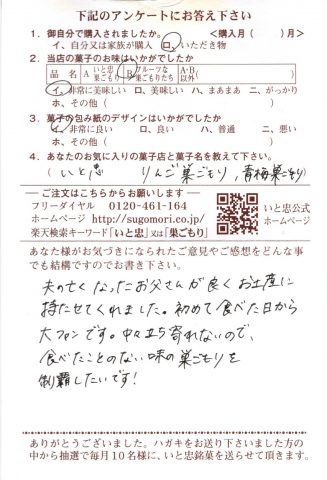 下記のアンケートにお答え下さい
1. 御自分で購入されましたか。 <購入月( )月>
イ、自分又は家族が購入 ロ、いただき物
2. 当店の菓子のお味はいかがでしたか
品名 A いと忠巣ごもり B フルーツな巣ごもりたち A・B以外( )
イ、非常に美味しい ロ、美味しい ハ、まあまあ ニ、がっかり
ホ、その他( )
3. 菓子の包み紙のデザインはいかがでしたか
イ、非常に良い ロ、良い ハ、普通 ニ、悪い
ホ、その他( )
4. あなたのお気に入りの菓子店と菓子名を教えて下さい。
(いと忠 りんご巣ごもり, 青梅巣ごもり)
ご注文はこちらからお願いします
フリーダイヤル 0120-461-164
ホームページ http://sugomori.co.jp/
楽天検索キーワード「いと忠」又は「巣ごもり」
いと忠公式
ホームページ
あなた様がお気づきになられたご意見やご感想をどんな事
でも結構ですのでお書き下さい。
夫の亡くなったお父さんが良くお土産に
持たせてくれました。初めて食べた日から
大ファンです。中々立ち寄れないので、
食べたことのない味の巣ごもりを
制覇したいです!
ありがとうございました。ハガキをお送り下さいました方の
中から抽選で毎月10名様に、いと忠銘菓を送らせて頂きます。